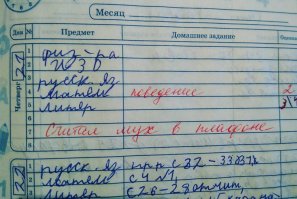 Месяц
Дни № Предмет Домашнее задание
Четверг 21
1 физ-ра
2 ИЗО
3 русск яз
4 матем поведение 2
5 литер
6
7 Считал мух в плафоне
22
1 русск. яз. упр с 32-33
2 матем с 4 №1
3 литер с 26-28 отчит,